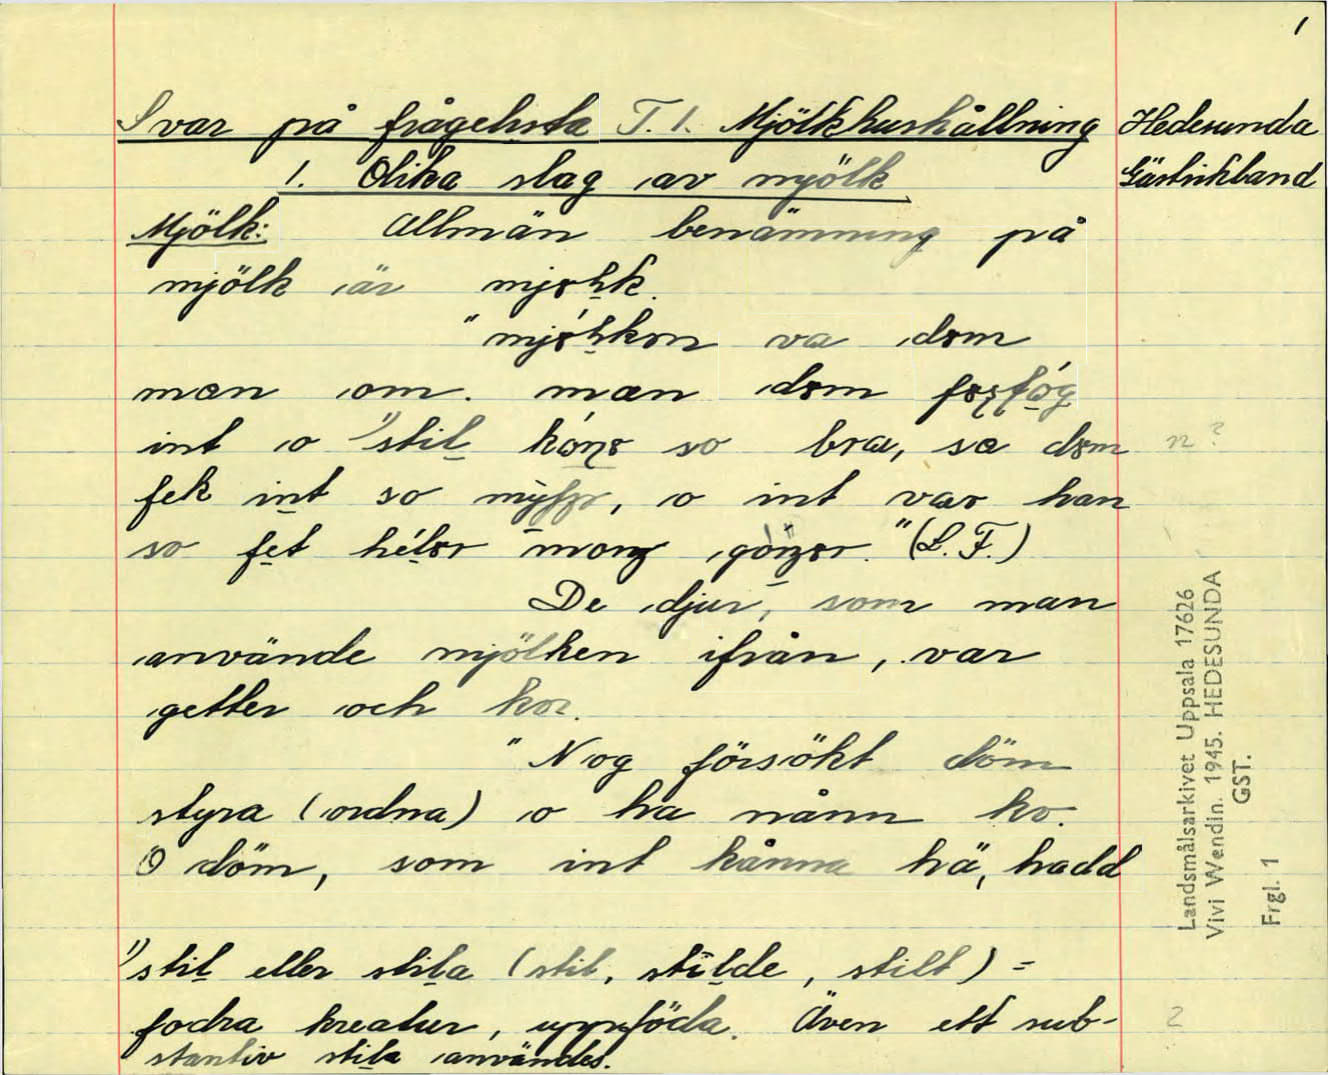 1
Svar på frågelista T. 1. Mjölkhushållning
Hedesunda
Gästrikland
1. Olika slag av mjölk
Mjölk: Allmän benämning på
mjölk är
va
man om. man
int o bra, sa n?
fek int so o int var han
so (L. F.)
De djur, som man
använde mjölken ifrån, var
getter och kor.
"Nog försökt döm
styra (ordna) o ha nånn ko.
O döm, som int kånna hä, hadd
1) stil eller stila (stil, stilde, stilt) =
fodra kreatur, uppföda. Även ett sub-
stantiv stila användes.
2
Landsmålsarkivet Uppsala 17626
Vivi Wendin. 1945. HEDESUNDA
GST.
Frgl. 1